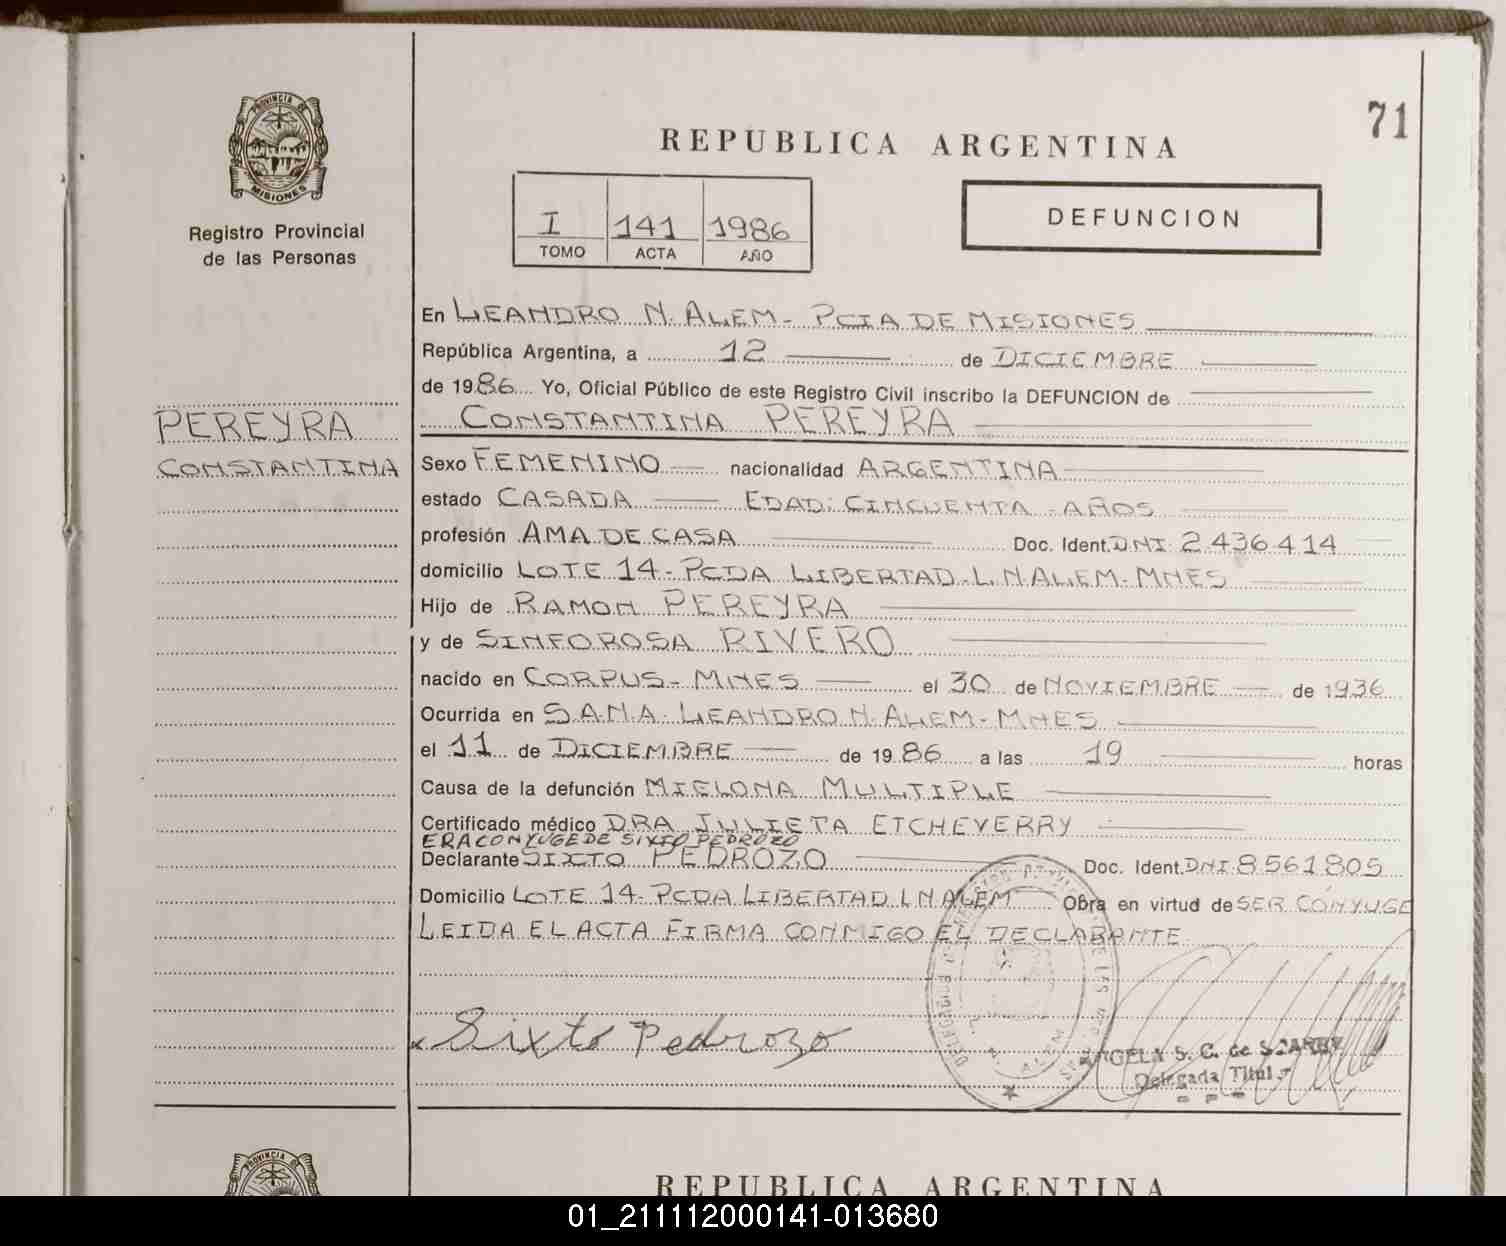 PROVINCIA DE
MISIONES
Registro Provincial
de las Personas
71
REPUBLICA ARGENTINA
I 141 1986
TOMO ACTA AÑO
DEFUNCION
En LEANDRO N. ALEM - PCIA DE MISIONES
República Argentina, a 12 de DICIEMBRE
de 1986 Yo, Oficial Público de este Registro Civil inscribo la DEFUNCION de
PEREYRA
CONSTANTINA
CONSTANTINA PEREYRA
Sexo FEMENINO nacionalidad ARGENTINA
estado CASADA EDAD: CINCUENTA AÑOS
profesión AMA DE CASA Doc. Ident. DNI 2.436.414
domicilio LOTE 14 - PCDA LIBERTAD - L. N. ALEM - MNES
Hijo de RAMON PEREYRA
y de SINFOROSA RIVERO
nacido en CORPUS - MNES el 30 de NOVIEMBRE de 1936
Ocurrida en S.A.M.A. LEANDRO N. ALEM - MNES
el 11 de DICIEMBRE de 1986 a las 19 horas
Causa de la defunción MIELOMA MULTIPLE
Certificado médico DRA JULIETA ETCHEVERRY
ERA CONYUGE DE SIXTO PEDROZO
Declarante SIXTO PEDROZO Doc. Ident. DNI 8561805
Domicilio LOTE 14 - PCDA LIBERTAD L N ALEM Obra en virtud de SER CÓNYUGE
LEIDA EL ACTA FIRMA CONMIGO EL DECLARANTE
Sixto Pedrozo
L. N. ALEM
S. C. de
Delegada Titul
PROVINCIA DE
REPUBLICA ARGENTINA
01_211112000141-013680